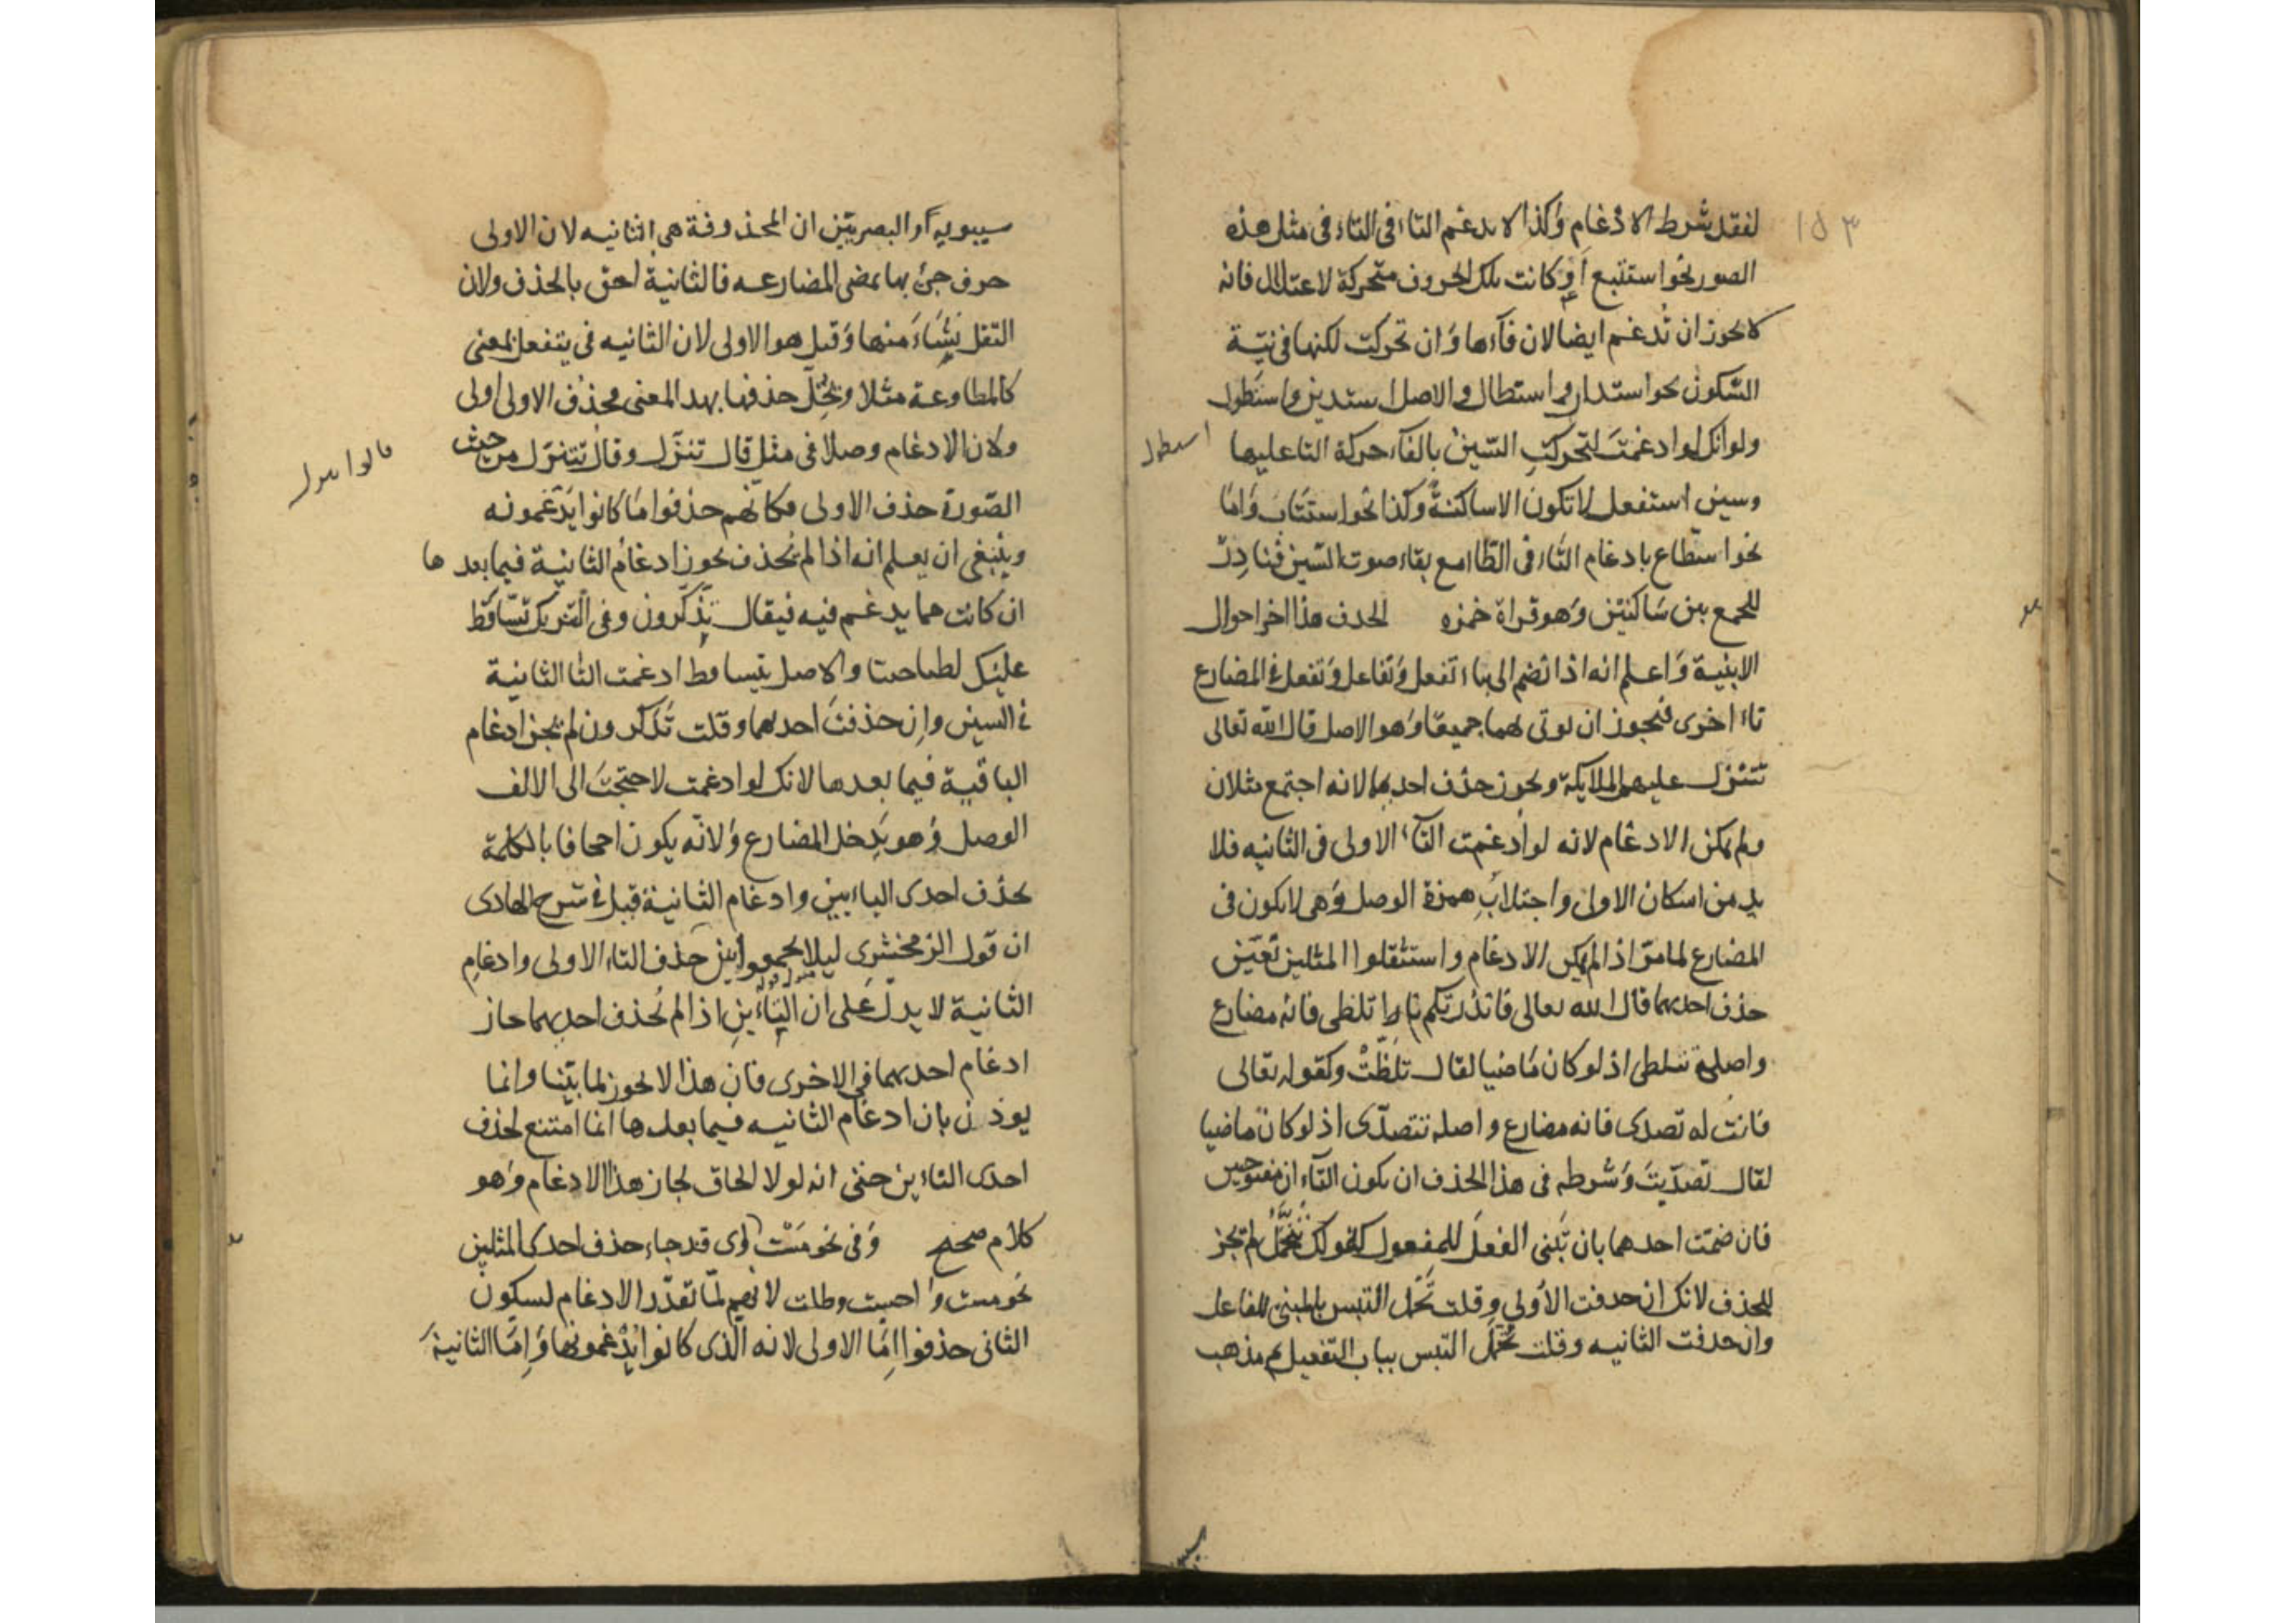 ١٥٣
لفقد شرط الادغام وكذا لا يدغم التاء في التاء في مثل هذه
الصور نحو استتبع او كانت تلك الحروف متحركة لاعتلال فانه
لا يجوز ان تدغم ايضا لان فاءها وان تحركت لكنها في نية
السكون نحو استدار واستطال والاصل استدين واستطول
ولو انك لو ادغمت لتحركت السين بالقاء حركة التا عليها
وسين استفعل لا تكون الا ساكنة وكذا نحو استتاب واما
نحو اسطاع بادغام التاء في الطاء مع بقاء صوت السين فنادر
للجمع بين ساكنين وهو قراة حمزه الحذف هذا اخر احوال
الابنية واعلم انه اذا تضم الى تاء تفعل وتفاعل وتفعل في المضارع
تاء اخرى فيجوز ان يوتى بهما جميعا وهو الاصل قال الله تعالى
تتنزل عليهم الملايكة ويجوز حذف احديهما لانه اجتمع مثلان
ولم يمكن الادغام لانه لو ادغمت التاء الاولى في الثانيه فلا
بد من اسكان الاولى واجتلاب همزة الوصل وهي لا يكون في
المضارع لما مر اذا لم يمكن الادغام واستثقلوا المثلين تعين
حذف احديهما قال الله تعالى فانذرتكم نارا تلظى فانه مضارع
واصله تتلظى اذ لو كان ماضيا لقال تلظت وكقوله تعالى
فانت له تصدى فانه مضارع واصله تتصدى اذ لو كان ماضيا
لقال تصديت وشرطه في هذا الحذف ان يكون التاءان مفتوحين
فان ضمت احدهما بان تبنى الفعل للمفعول كقولك تتحمل لم تجز
للحذف لانك ان حذفت الاولى وقلت تحمل التبس بالمبني للفاعل
وان حذفت الثانيه وقلت تحمل التبس بباب التفعيل ثم مذهب
سيبويه والبصريين ان المحذوفة هي الثانيه لان الاولى
حرف جئ بها لمعنى المضارعه فالثانية احق بالحذف ولان
الثقل نشاء منها وقيل هو الاولى لان الثانيه في يتفعل لمعنى
كالمطاوعة مثلا ويخل حذفها بهذا المعنى فحذف الاولى اولى
ولان الادغام وصلا في مثل قال تنزل وقال تتنزل من حيث
قالوا تنزل
الصورة حذف الاولى فكانهم حذفوا ما كانوا يدغمونه
وينبغي ان يعلم انه اذا لم تحذف يجوز ادغام الثانية فيما بعدها
ان كانت مما يدغم فيه فيقال تذكرون وفي التنزيل تساقط
عليك رطبا جنيا والاصل تتساقط ادغمت التا الثانية
في السين وان حذفت احديهما وقلت تذكرون لم تجز ادغام
الباقية فيما بعدها لانك لو ادغمت لاحتجت الى الالف
الوصل وهو يدخل المضارع ولانه يكون احجافا بالكلمة
بحذف احدى التاءيين وادغام الثانية قيل في شرح الهادى
ان قول الزمخشري ليلا يجمعوا بين حذف التاء الاولى وادغام
الثانية لا يدل على ان التاءين اذا لم تحذف احديهما جاز
ادغام احديهما في الاخرى فان هذا لا يجوز لما بينا وانما
يوذن بان ادغام الثانيه فيما بعدها انما امتنع لحذف
احدى التاءين حتى انه لولا الحاق لجاز هذا الادغام وهو
كلام صحيح وفي نحو مست اوى قد جاء حذف احدى المثلين
نحو مست واحست وظلت لانهم لما تعذر الادغام لسكون
الثاني حذفوا اما الاولى لانه الذى كانوا يدغمونها واما الثانية